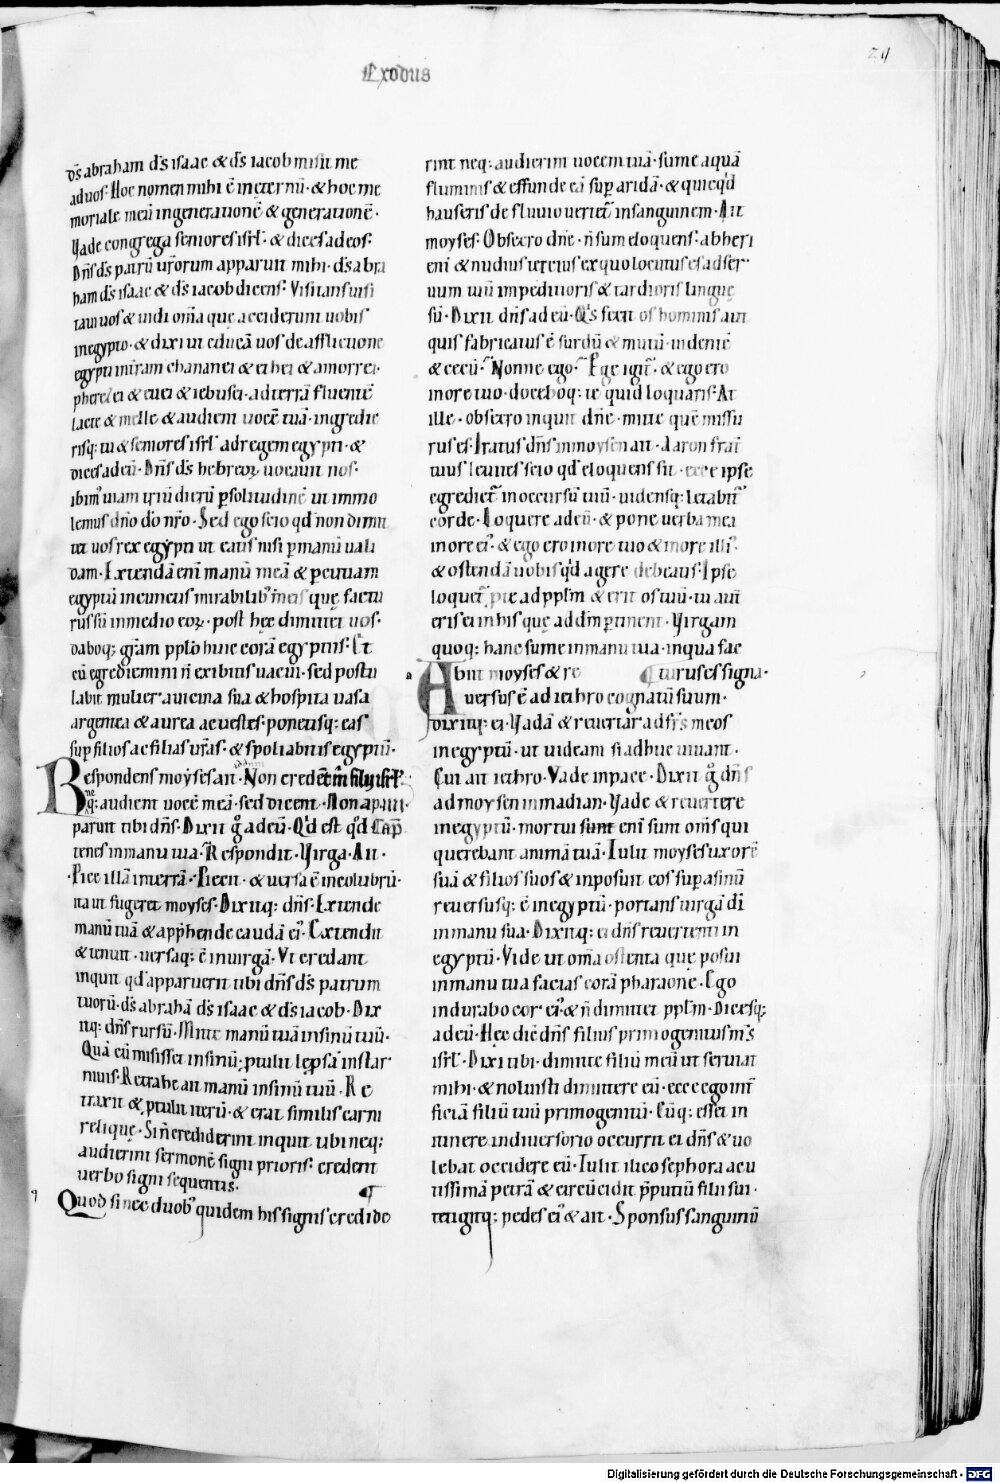 Exodus
29
ds̄ abraham ds̄ isaac & ds̄ iacob misit me
ad uos· Hoc nomen mihi ē in eternū· & hoc me
moriale meū in generationē & generationē·
Vade congrega seniores isrl̄· & dices ad eos·
Dn̄s ds̄ patrū ur̄orum apparuit mihi· ds̄ abra
ham ds̄ isaac & ds̄ iacob dicens· Visitans uisi
taui uos & uidi om̄ia quę acciderunt uobis
in egypto· & dixi ut educā uos de afflictione
egypti in tr̄am chananei & ethei & amorrei·
pherezei & euei & iebusei· ad terrā fluentē
lacte & melle & audient uocē tuā· ingredie
risq; tu & seniores isrl̄ ad regem egypti· &
dices ad eū· Dn̄s ds̄ hebreoꝝ uocauit nos·
ibimꝰ uiam triū dierū ꝑ solitudinē ut immo
lemus dn̄o dō nr̄o· Sed ego scio qd̄ non dimit
tet uos rex egypti ut eatis nisi ꝑ manū uali
dam· Extendā eni manū meā & ꝑcutiam
egyptū in cunctis mirabilibꝰ meis quę factu
rus sū in medio eoꝝ· post hęc dimittet uos·
daboq; gr̄am pplo huic corā egyptiis· Et
cū egrediemini n̄ exibitis uacui· sed postu
labit mulier a uicina sua & hospita uasa
argentea & aurea ac uestes· ponetisq; eas
sup filios ac filias ur̄as· & spoliabitis egyptū·
Respondens moyses ait· Non credēt m̄ filii isrl̄·
neq; audient uocē meā· sed dicent· Non apa
paruit tibi dn̄s· Dixit g̊ ad eū· Qd̄ est qd̄
tenes in manu tua· Respondit· Virga· Ait·
Piice illā in terrā· Piecit· & uersa ē in colubrū·
ita ut fugeret moyses· Dixitq; dn̄s· Extende
manū tuā & appħende caudā eiꝰ· Extendit
& tenuit· uersaq; ē in uirgā· Vt credant
inquit qd̄ apparuerit tibi dn̄s ds̄ patrum
tuorū· ds̄ abrahā ds̄ isaac & ds̄ iacob· Dix
itq; dn̄s rursū· Mitte manū tuā in sinū tuū·
Quā cū misisset in sinū; ptulit lepsā instar
niuis· Retrahe ait manū in sinū tuū· Re
traxit & ptulit iterū· & erat similis carni
relique· Si n̄ crediderint inquit tibi neq;
audierint sermonē signi prioris· credent
uerbo signi sequentis·
Quod si nec duobꝰ quidem his signis credide
rint neq; audierint uocem tuā· sume aquā
fluminis & effunde eā suꝑ aridā· & quicqd̄
hauseris de fluuio uertet in sanguinem· Ait
moyses· Obsecro dn̄e· n̄ sum eloquens· ab heri
eni & nudius tertius ex quo locutus es ad ser
uum tuū impeditioris & tardioris linguę
sū· Dixit dn̄s ad eū· Qis fecit os hominis aut
quis fabricatus ē surdū & mutū· uidentē
& cecū· Nonne ego· Pge igit· & ego ero
in ore tuo· doceboq; te quid loquaris· At
ille· obsecro inquit dn̄e· mitte quē missu
rus es· Iratus dn̄s in moysen ait· Aaron frat
tuus leuites scio qd̄ eloquens sit· ecce ipse
egrediet in occursū tuū· uidensq; letabit
corde· Loquere ad eū· & pone uerba mea
in ore eiꝰ· & ego ero in ore tuo & in ore illiꝰ·
& ostendā uobis qd̄ agere debeatis· Ipse
loquet p te ad pplm̄ & erit os tuū· tu aut
eris ei in his quę ad dm̄ ꝑtinent· Virgam
quoq; hanc sume in manu tua· in qua fac
Abiit moyses & re turus es signa·
uersus ē ad iethro cognatū suum·
dixitq; ei· Vadā & reuertar ad frs̄ meos
in egyptū· ut uideam si adhuc uiuant·
Cui ait iethro· Vade in pace· Dixit g̊ dn̄s
ad moysen in madian· Vade & reuertere
in egyptū· mortui sunt eni sunt om̄s qui
querebant animā tuā· Tulit moyses uxorē
suā & filios suos & inposuit eos suꝑ asinū
reuersusq; ē in egyptū· portans uirgā di
in manu sua· Dixitq; ei dn̄s reuertenti in
egyptū· Vide ut om̄ia ostenta quę posui
in manu tua facias corā pharaone· Ego
indurabo cor eiꝰ & n̄ dimittet pplm̄· Dicesq;
ad eū· Hęc dic̄ dn̄s filius primogenitus ms̄
isrl̄· Dixi tibi· dimitte filiū meū ut seruiat
mihi· & noluisti dimittere eū· ecce ego int̄
ficiā filiū tuū primogenitū· Cūq; esset in
itinere in diuersorio occurrit ei dn̄s & uo
lebat occidere eū· Tulit ilico sephora acu
tissimā petrā & circūcidit pputiū filii sui·
tetigitq; pedes eiꝰ & ait· Sponsus sanguinū
Digitalisierung gefördert durch die Deutsche Forschungsgemeinschaft - DFG